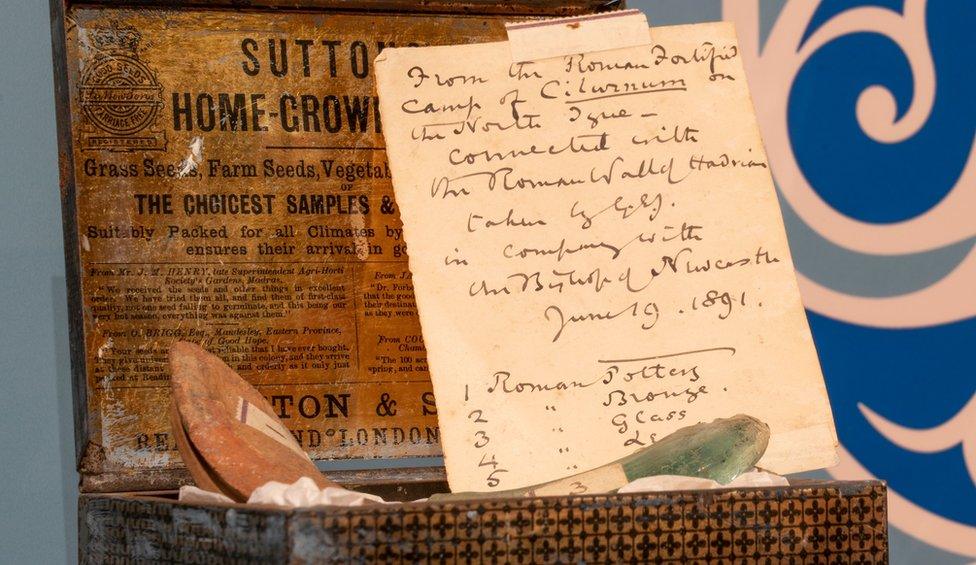 SUTTO
HOME-GROW
Grass Seeds, Farm Seeds, Vegetab
OF
THE CHOICEST SAMPLES &
Suitably Packed for all Climates by
ensures their arrival in go
From Mr. J. M. HENRY, late Superintendent Agri-Horti
Society's Gardens, Madras.
"We received the seeds and other things in excellent
order. We have tried them all, and find them of first-class
quality, not one seed failing to germinate, and this being our
very hot season, everything was against them."
From O. BRIGG, Esq., Mandesley, Eastern Province,
of Good Hope.
Your seeds a liable that I have ever bought.
They give univer in this colony, and they arrive
at these distant and orderly as it only just
packed at Readin
From JA
"Dr. Forb
that the good
their destinat
as they were
From COU
Cham
"The 100 ac
spring, and can
TON & S
REA ND LONDON
REGISTERED
From the Roman Fortified
Camp of Cilurnum on
the North Tyne —
connected with
the Roman Wall of Hadrian
taken by
in company with
the Bishop of Newcastle
June 19. 1891.
1 Roman Pottery
2 " Bronze.
3 " Glass
4 "
5 "
3